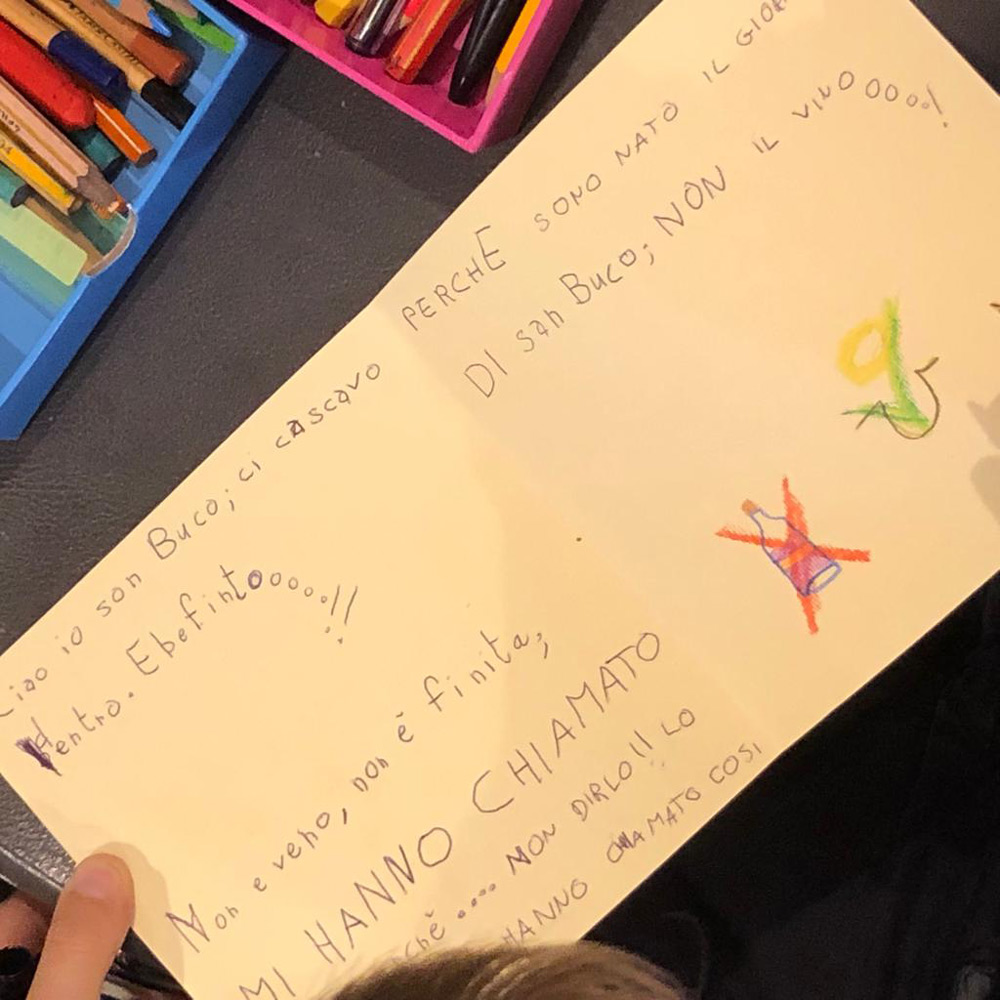 Ciao io son Buco; ci cascavo
dentro. Ebefintooooo!!
Non e vero, non è finita;
MI HANNO CHIAMATO
.... NON DIRLO!! LO
HANNO CHAMATO COSI
PERCHE SONO NATO IL
DI san BUCO; NON IL VINOOOOO!